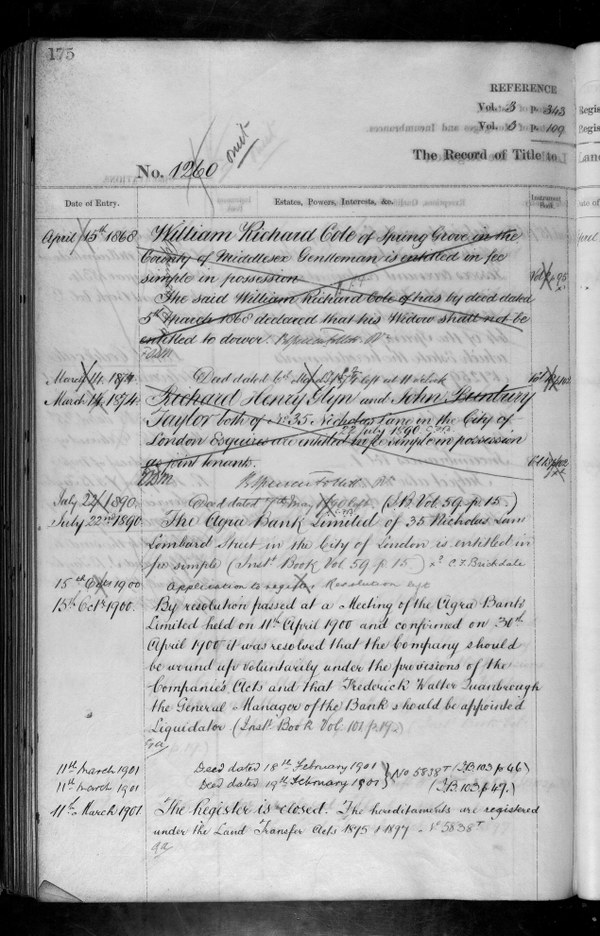 175
REFERENCE
Vol. 3 p. 343
Vol. 3 p. 109
The Record of Title to
No. 1260
omit
Date of Entry.
Estates, Powers, Interests, &c.
Instrument Book.
April 15th 1868
William Richard Cole of Spring Grove in the
County of Middlesex Gentleman is entitled in fee
simple in possession
The said William Richard Cole has by deed dated
5th March 1868 declared that his Widow shall not be
entitled to dower.
March 14, 1874.
Deed dated 6th March 1874 left at 11 o'clock
March 14, 1874.
Richard Henry Glyn and John
Taylor both of No 35 Nicholas Lane in the City of
22 July 1890
London Esquires are entitled in fee simple in possession
as joint tenants.
July 22/1890.
Deed dated May 1890 left. (I.B Vol. 59. p. 15.)
July 22nd 1890
The Agra Bank Limited of 35 Nicholas Lane
Lombard Street in the City of London is entitled in
fee simple (Inst. Book Vol. 59. p. 15) C. F. Brickdale
15th Octr 1900
Application to register Resolution &c
15th Octr 1900.
By resolution passed at a Meeting of the Agra Bank
Limited held on 11th April 1900 and confirmed on 30th
April 1900 it was resolved that the Company should
be wound up voluntarily under the provisions of the
Companies Acts and that Frederick Walter Quanbrough
the General Manager of the Bank should be appointed
Liquidator (Inst. Book Vol. 101 p. 19.)
11th March 1901
Deed dated 18th February 1901 } No 5838T (I.B. 103 p. 46)
11th March 1901
Deed dated 19th February 1901 } (I.B. 103 p. 49.)
11th March 1901
The Register is closed. The hereditaments are registered
under the Land Transfer Acts 1875 & 1897 - No 5838T